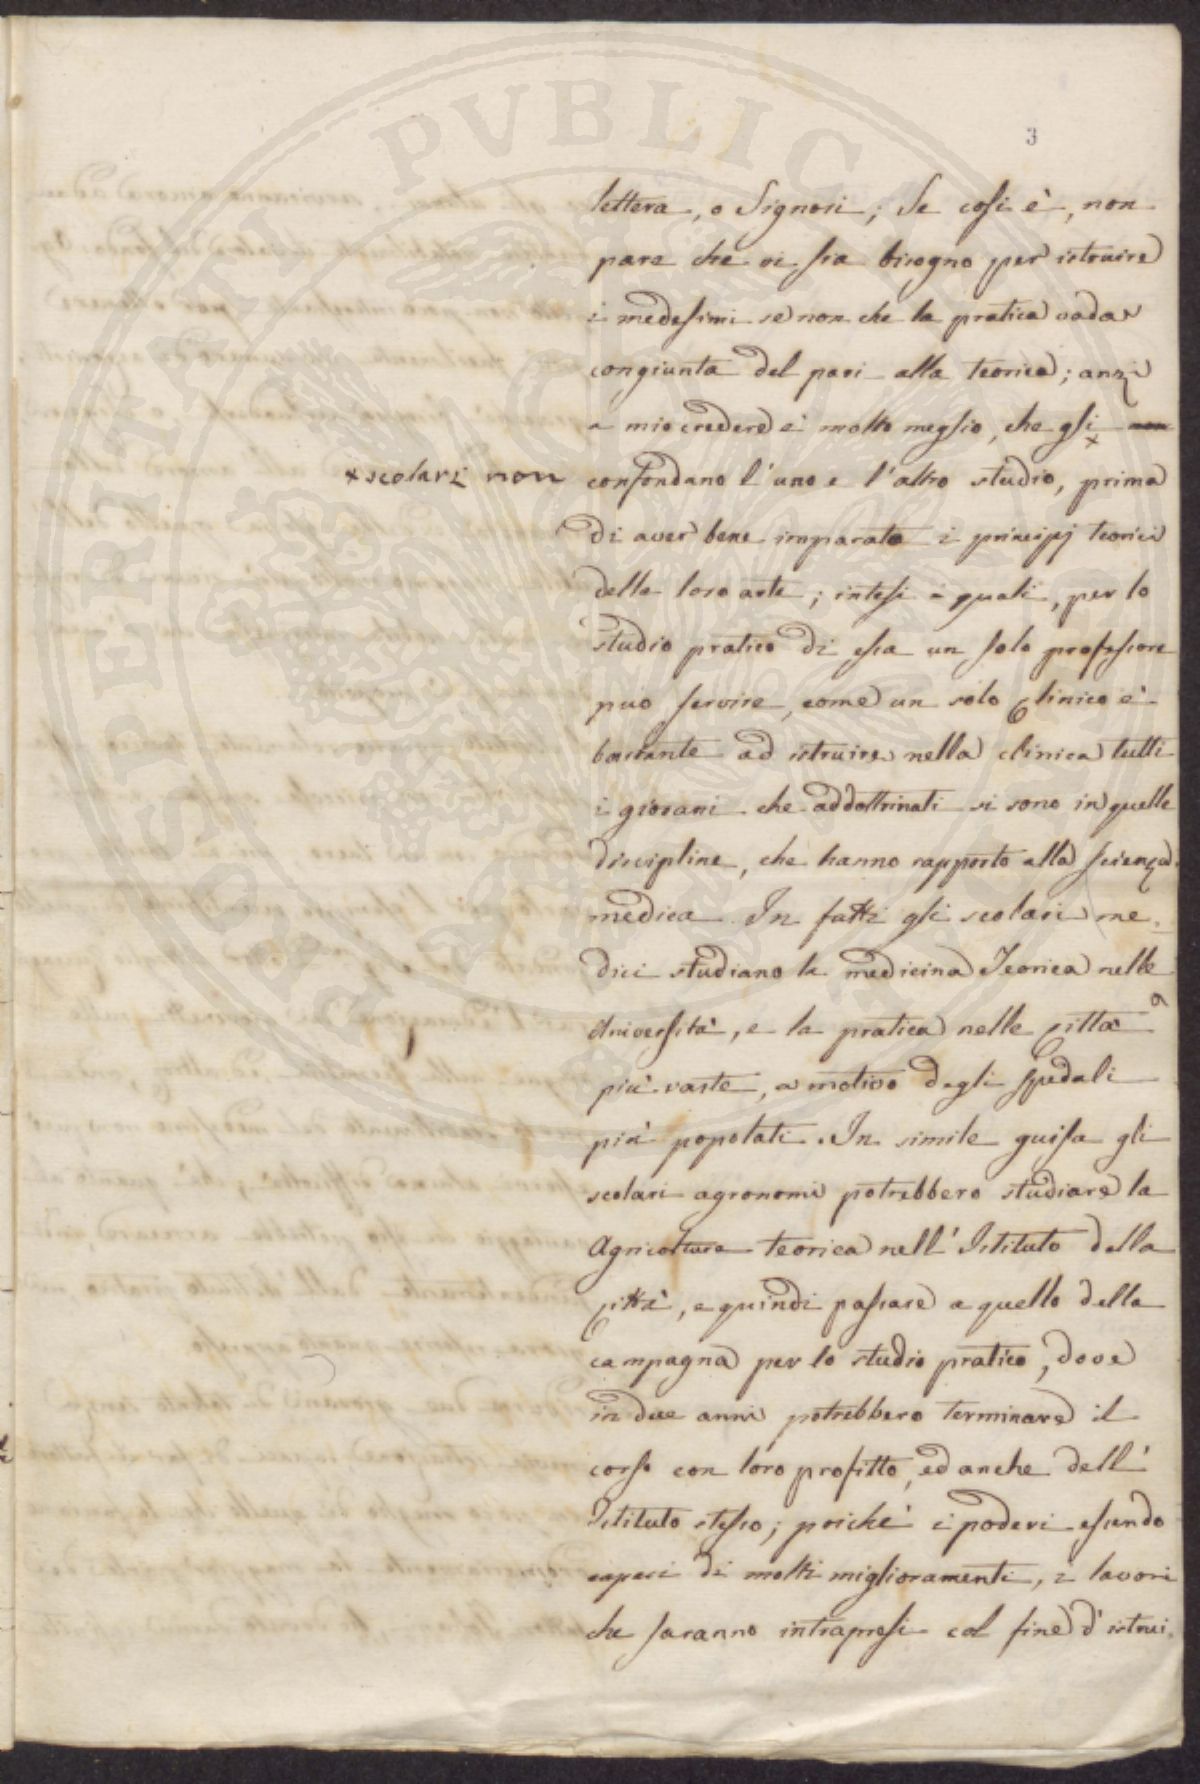 3
lettera, o Signori; Se cosi è, non
pare che vi sia bisogno per istruire
i medesimi se non che la pratica vada
congiunta del pari alla teorica; anzi
a mio credere è molto meglio, che gli x non
x scolari non
confondano l'uno e l'altro studio, prima
di aver bene imparato i principj teorici
della loro arte; intesi i quali, per lo
studio pratico di essa un solo professore
può servire, come un solo Clinico è
bastante ad istruire nella clinica tutti
i giovani che addottrinati si sono in quelle
discipline, che hanno rapporto alla scienza
medica. In fatti gli scolari me-
dici studiano la medicina Teorica nelle
Università, e la pratica nelle Città
più vaste, a motivo degli spedali
più popolati. In simile guisa gli
scolari agronomi potrebbero studiare la
Agricoltura teorica nell'Istituto della
Città, e quindi passare a quello della
campagna per lo studio pratico, dove
in due anni potrebbero terminare il
corso con loro profitto, ed anche dell'
Istituto stesso; poichè i poderi essendo
capaci di molti miglioramenti, i lavori
che saranno intrapresi col fine d'istrui-